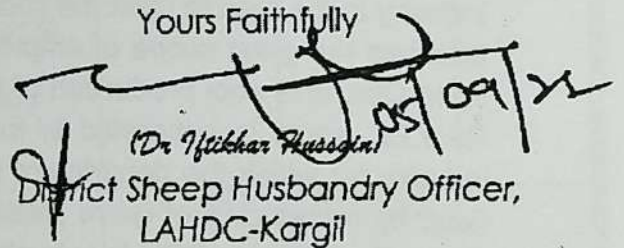 Yours Faithfully
05/09/22
(Dr Iftikhar Hussain)
District Sheep Husbandry Officer,
LAHDC-Kargil